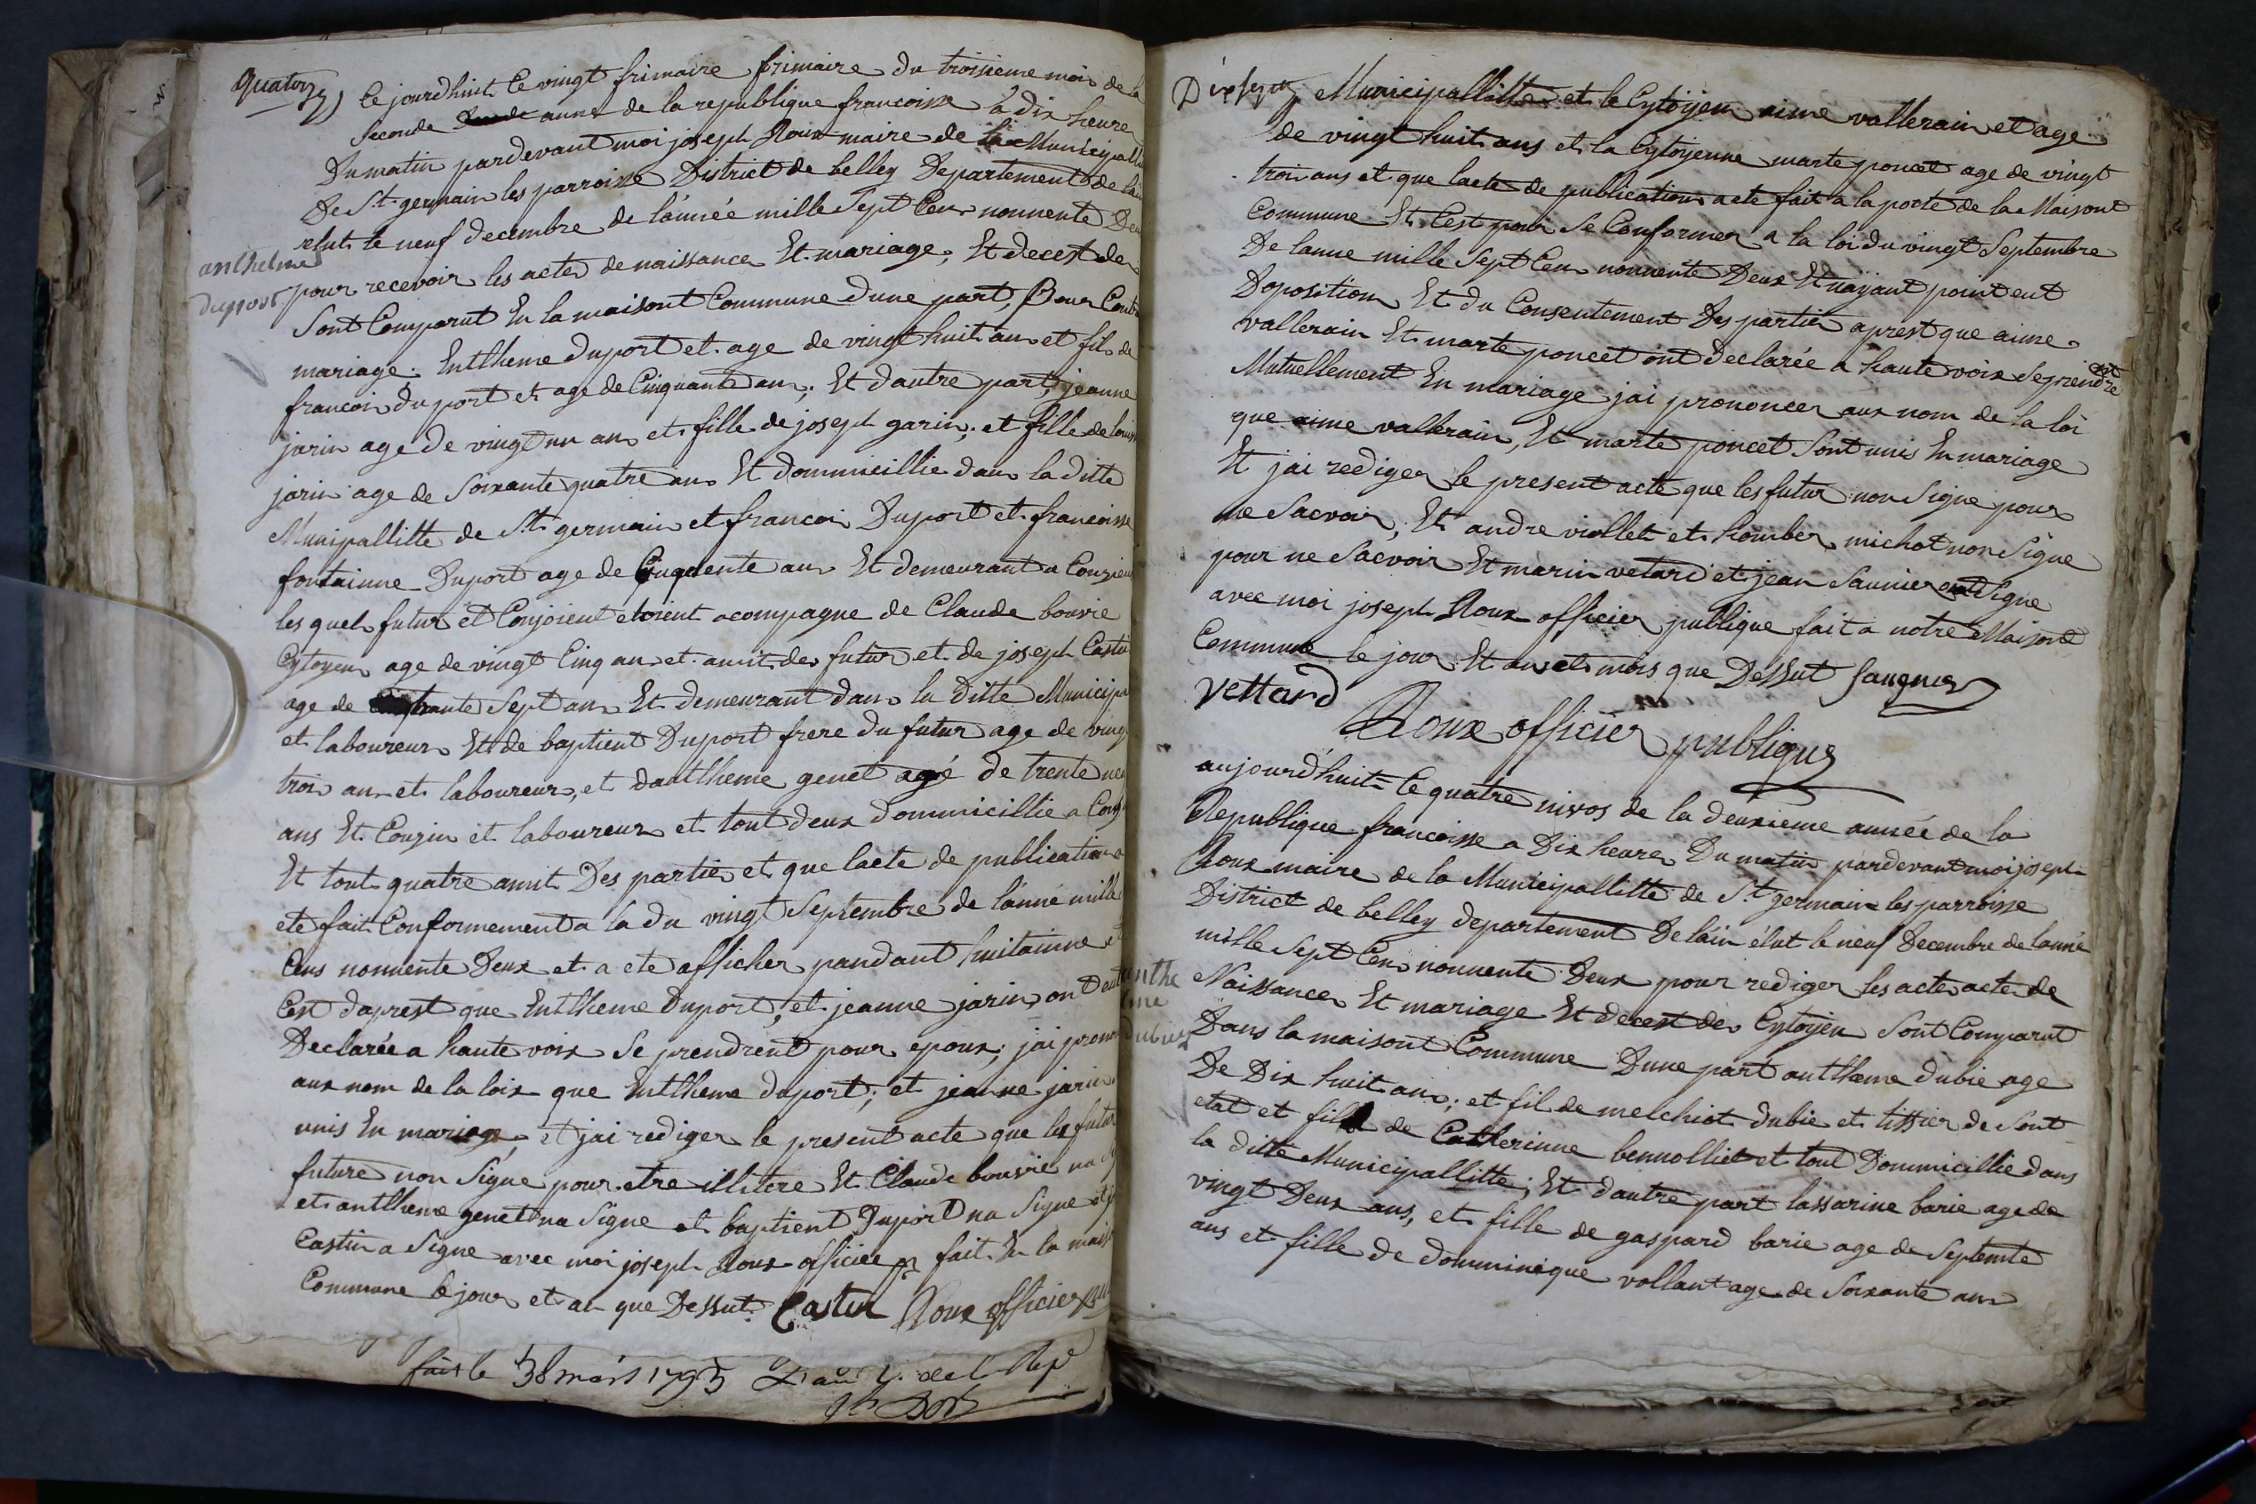 quatorze
Ce jourdhuit Ce vingt frimaire frimaire du troisieme mois de la
seconde anne de la republique francoisse à dix heure
Du matin pardevant moi joseph Roux maire de la Municipalli
De St. germain les parroisse District de belley Departement de lain
elut le neuf decembre de lánnée mille Sept Cens nonnente Deu
anthelme
duport
pour recevoir les actes de naissance Et mariage, Et decest de
Sont Comparut En la maisont Commune dune part, Pour Contr
mariage. Enthleme duport et age de vingt huit ans et fils de
francoir duport et age de Cinquante ans, Et dautre part, jeanne
jarin age de vingt un ans et fille de joseph garin, et fille de louis
jarin age de soixante quatre ans Et dommicillie dans la ditte
Munipallitte de St. germain et francoi Duport et francoisse
fontainne Duport age de Cinquente ans Et demeurant a Conzieu
les quels futur et Conjoient etoient acompagne de Claude bouvie
Cytoyen age de vingt Cinq ans et amit des futur et de joseph Castin
age de Sept ans Et demeurant dans la ditte Municipa
et laboureur Et de baptient Duport frere du futur age de ving
trois ans et laboureur, et dantlheme genet agé de trente neu
ans Et Couzin et laboureur et tout deux dommicillie a Conz
Et tout quatre amit Des partie et que lacte de publication a
ete fait Conformement a la du vingt Septembre de lánné mille
Cens nonnente Deux et a ete afficher pandant huitainne et
Cest daprest que Entlheme Duport, et jeanne jarin ont eut
Declarée a haute voix Se prendrent pour epoux, jai pronon
aux nom de la loix que Entlheme duport, et jeanne jarin
unis En mariage, et jai rediger le present acte que les futur
future non Signe pour etre illitere Et Claude bouvie na
et antlheme genet na Signe et baptient Duport na Signe et j
Castin a Signe avec moi joseph Roux officier p fait En la maiso
Commune le jour et an que Dessut. Castin Roux officier pu
fait le 38 mars 1793 L'an de l Rep

Dixsept
Municipallitte et le Cytoyen aime vallerain et age
de vingt huit ans et la Cytoyenne marte poncet age de vingt
trois ans et que lacte de publication a ete fait a la porte de la Maisont
Commune Et Cest pour Se Conformer a la loi du vingt Septembre
De lanne mille Sept Cens nonnente Deux Et nayant point eut
Doposition Et du Consentement Des partie aprest que aime
vallerain Et marte poncet ont declarée a haute voix Se prendre
Mutuellement En mariage jai prononcer aux nom de la loi
que aime vallerain, Et marte poncet Sont unis En mariage
Et jai rediger le present acte que les futur non Signe pour
ne Sacvoir, Et andre viollet et homber michot non Signe
pour ne Sacvoir Et marin vetard et jean Saunier ont Signe
avec moi joseph Roux officier publique fait a notre Maisont
Commune le jour Et an et mois que Dessut
vettard
Roux officier publique
aujourdhuit Ce quatre nivos de la deuxieme année de la
Republique francoisse a Dix heure Du matin pardevant moi joseph
Roux maire de la Municipallitte de St. germain les parroisse
District de belley departement De láin élut le neuf Decembre de lanné
mille Sept Cens nonnente Deux pour rediger les actes acte de
anthe
lme
dubie
Naissance Et mariage Et decest des Cytoyen Sont Comparut
Dans la maisont Commune Dune part antlheme dubie age
De Dix huit ans, et fil de melchiot dubie et tissier de Sont
etat et fils de Catherinne bennolliet et tout Dommicillie dans
la ditte Municipallitte; Et dautre part lassarine barie age de
vingt Deux ans, et fille de gaspard barie age de Septente
ans et fille de domminique vollant age de Soixante ans